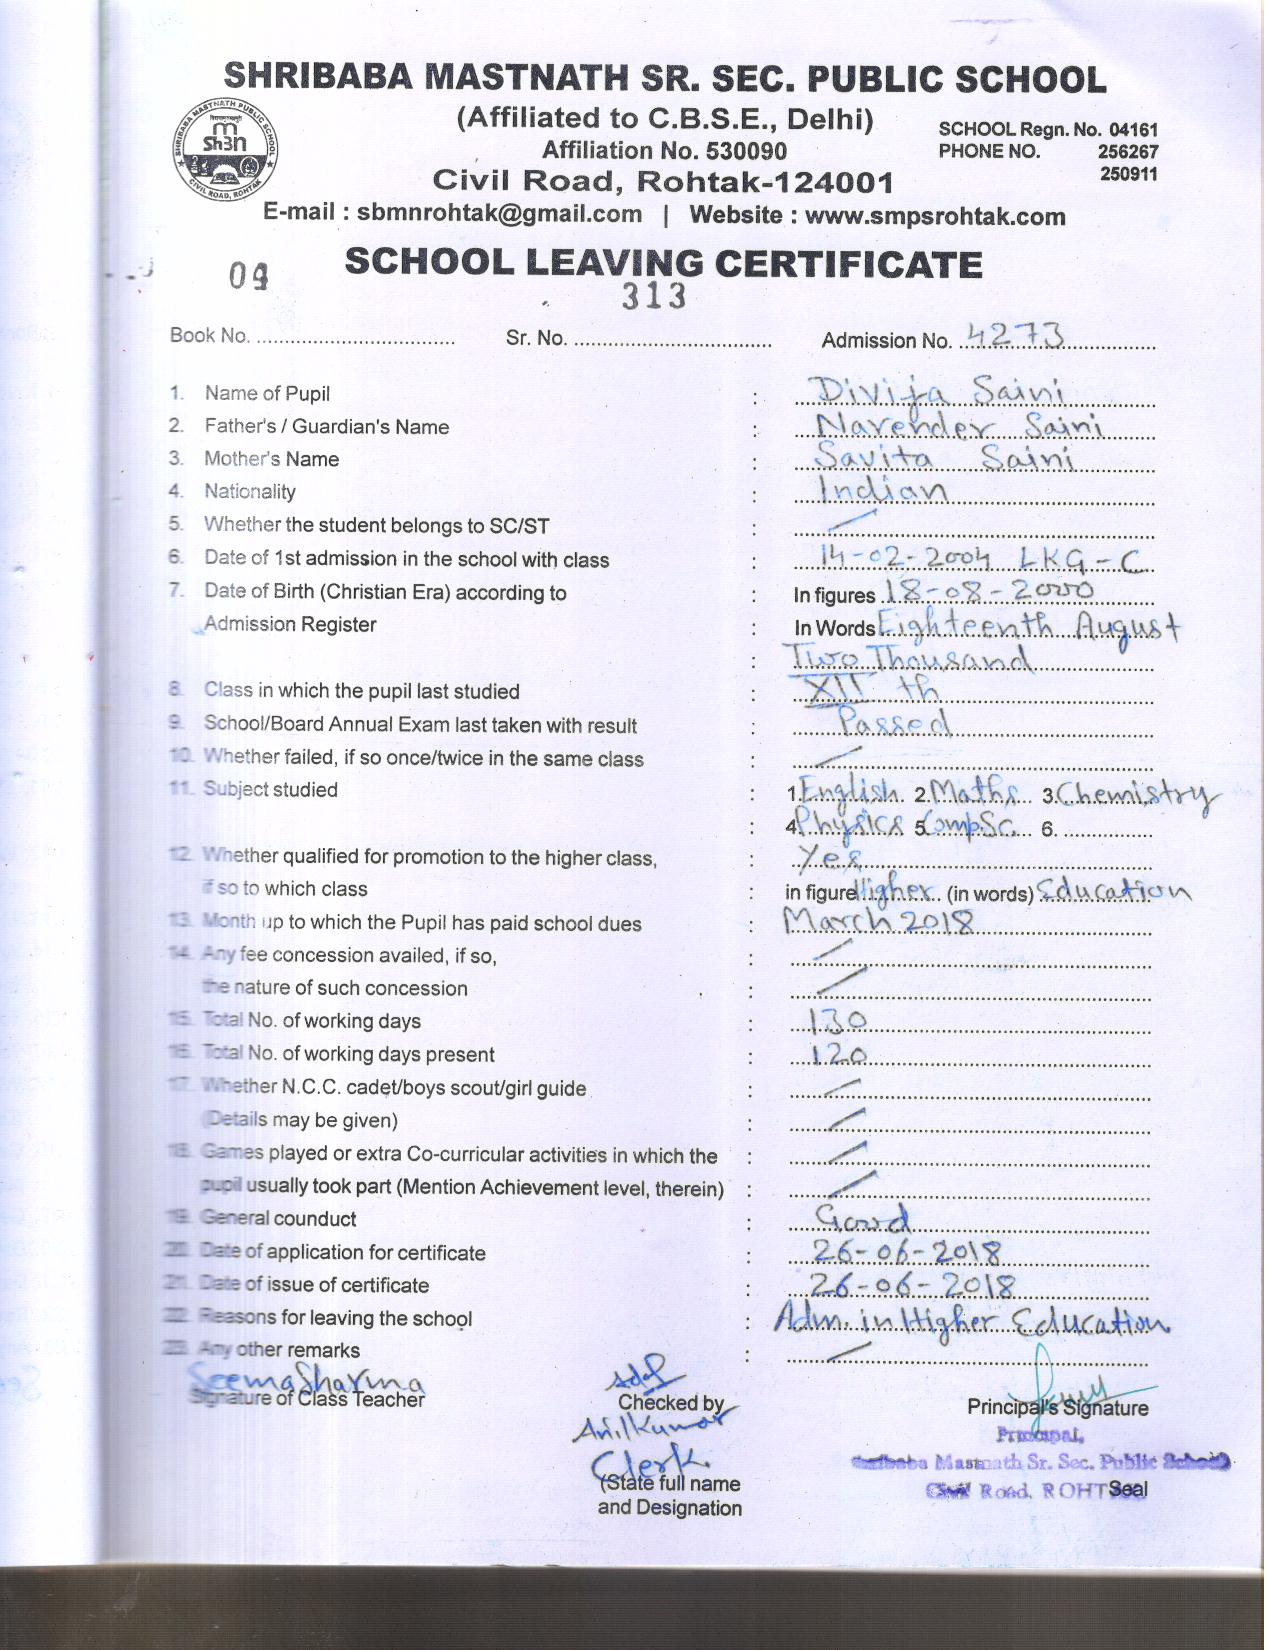 SHRIBABA MASTNATH SR. SEC. PUBLIC SCHOOL
(Affiliated to C.B.S.E., Delhi)
Affiliation No. 530090
SCHOOL Regn. No. 04161
PHONE NO. 256267
250911
Civil Road, Rohtak-124001
E-mail : sbmnrohtak@gmail.com | Website : www.smpsrohtak.com
SHRIBABA MASTNATH PUBLIC SCHOOL
CIVIL ROAD, ROHTAK
SCHOOL LEAVING CERTIFICATE
09 313
Book No. Sr. No. Admission No. 4273
1. Name of Pupil : Divija Saini
2. Father's / Guardian's Name : Narender Saini
3. Mother's Name : Savita Saini
4. Nationality : Indian
5. Whether the student belongs to SC/ST : /
6. Date of 1st admission in the school with class : 14-02-2004 LKG-C
7. Date of Birth (Christian Era) according to : In figures 18-08-2000
Admission Register : In Words Eighteenth August
: Two Thousand
8. Class in which the pupil last studied : XII th
9. School/Board Annual Exam last taken with result : Passed
10. Whether failed, if so once/twice in the same class : /
11. Subject studied : 1. English 2. Maths 3. Chemistry
: 4. Physics 5. Comp.Sc. 6.
12. Whether qualified for promotion to the higher class, : Yes
if so to which class : in figure Higher (in words) Education
13. Month up to which the Pupil has paid school dues : March 2018
14. Any fee concession availed, if so, : /
the nature of such concession : /
15. Total No. of working days : 130
16. Total No. of working days present : 120
17. Whether N.C.C. cadet/boys scout/girl guide : /
(Details may be given) : /
18. Games played or extra Co-curricular activities in which the : /
pupil usually took part (Mention Achievement level, therein) : /
19. General counduct : Good
20. Date of application for certificate : 26-06-2018
21. Date of issue of certificate : 26-06-2018
22. Reasons for leaving the school : Adm. in Higher Education
23. Any other remarks : /
Seema Sharma
Signature of Class Teacher
Checked by
Anil Kumar
Clerk
(State full name
and Designation
Principal's Signature
Principal,
Shribaba Mastnath Sr. Sec. Public School
Civil Road, ROHT
Seal